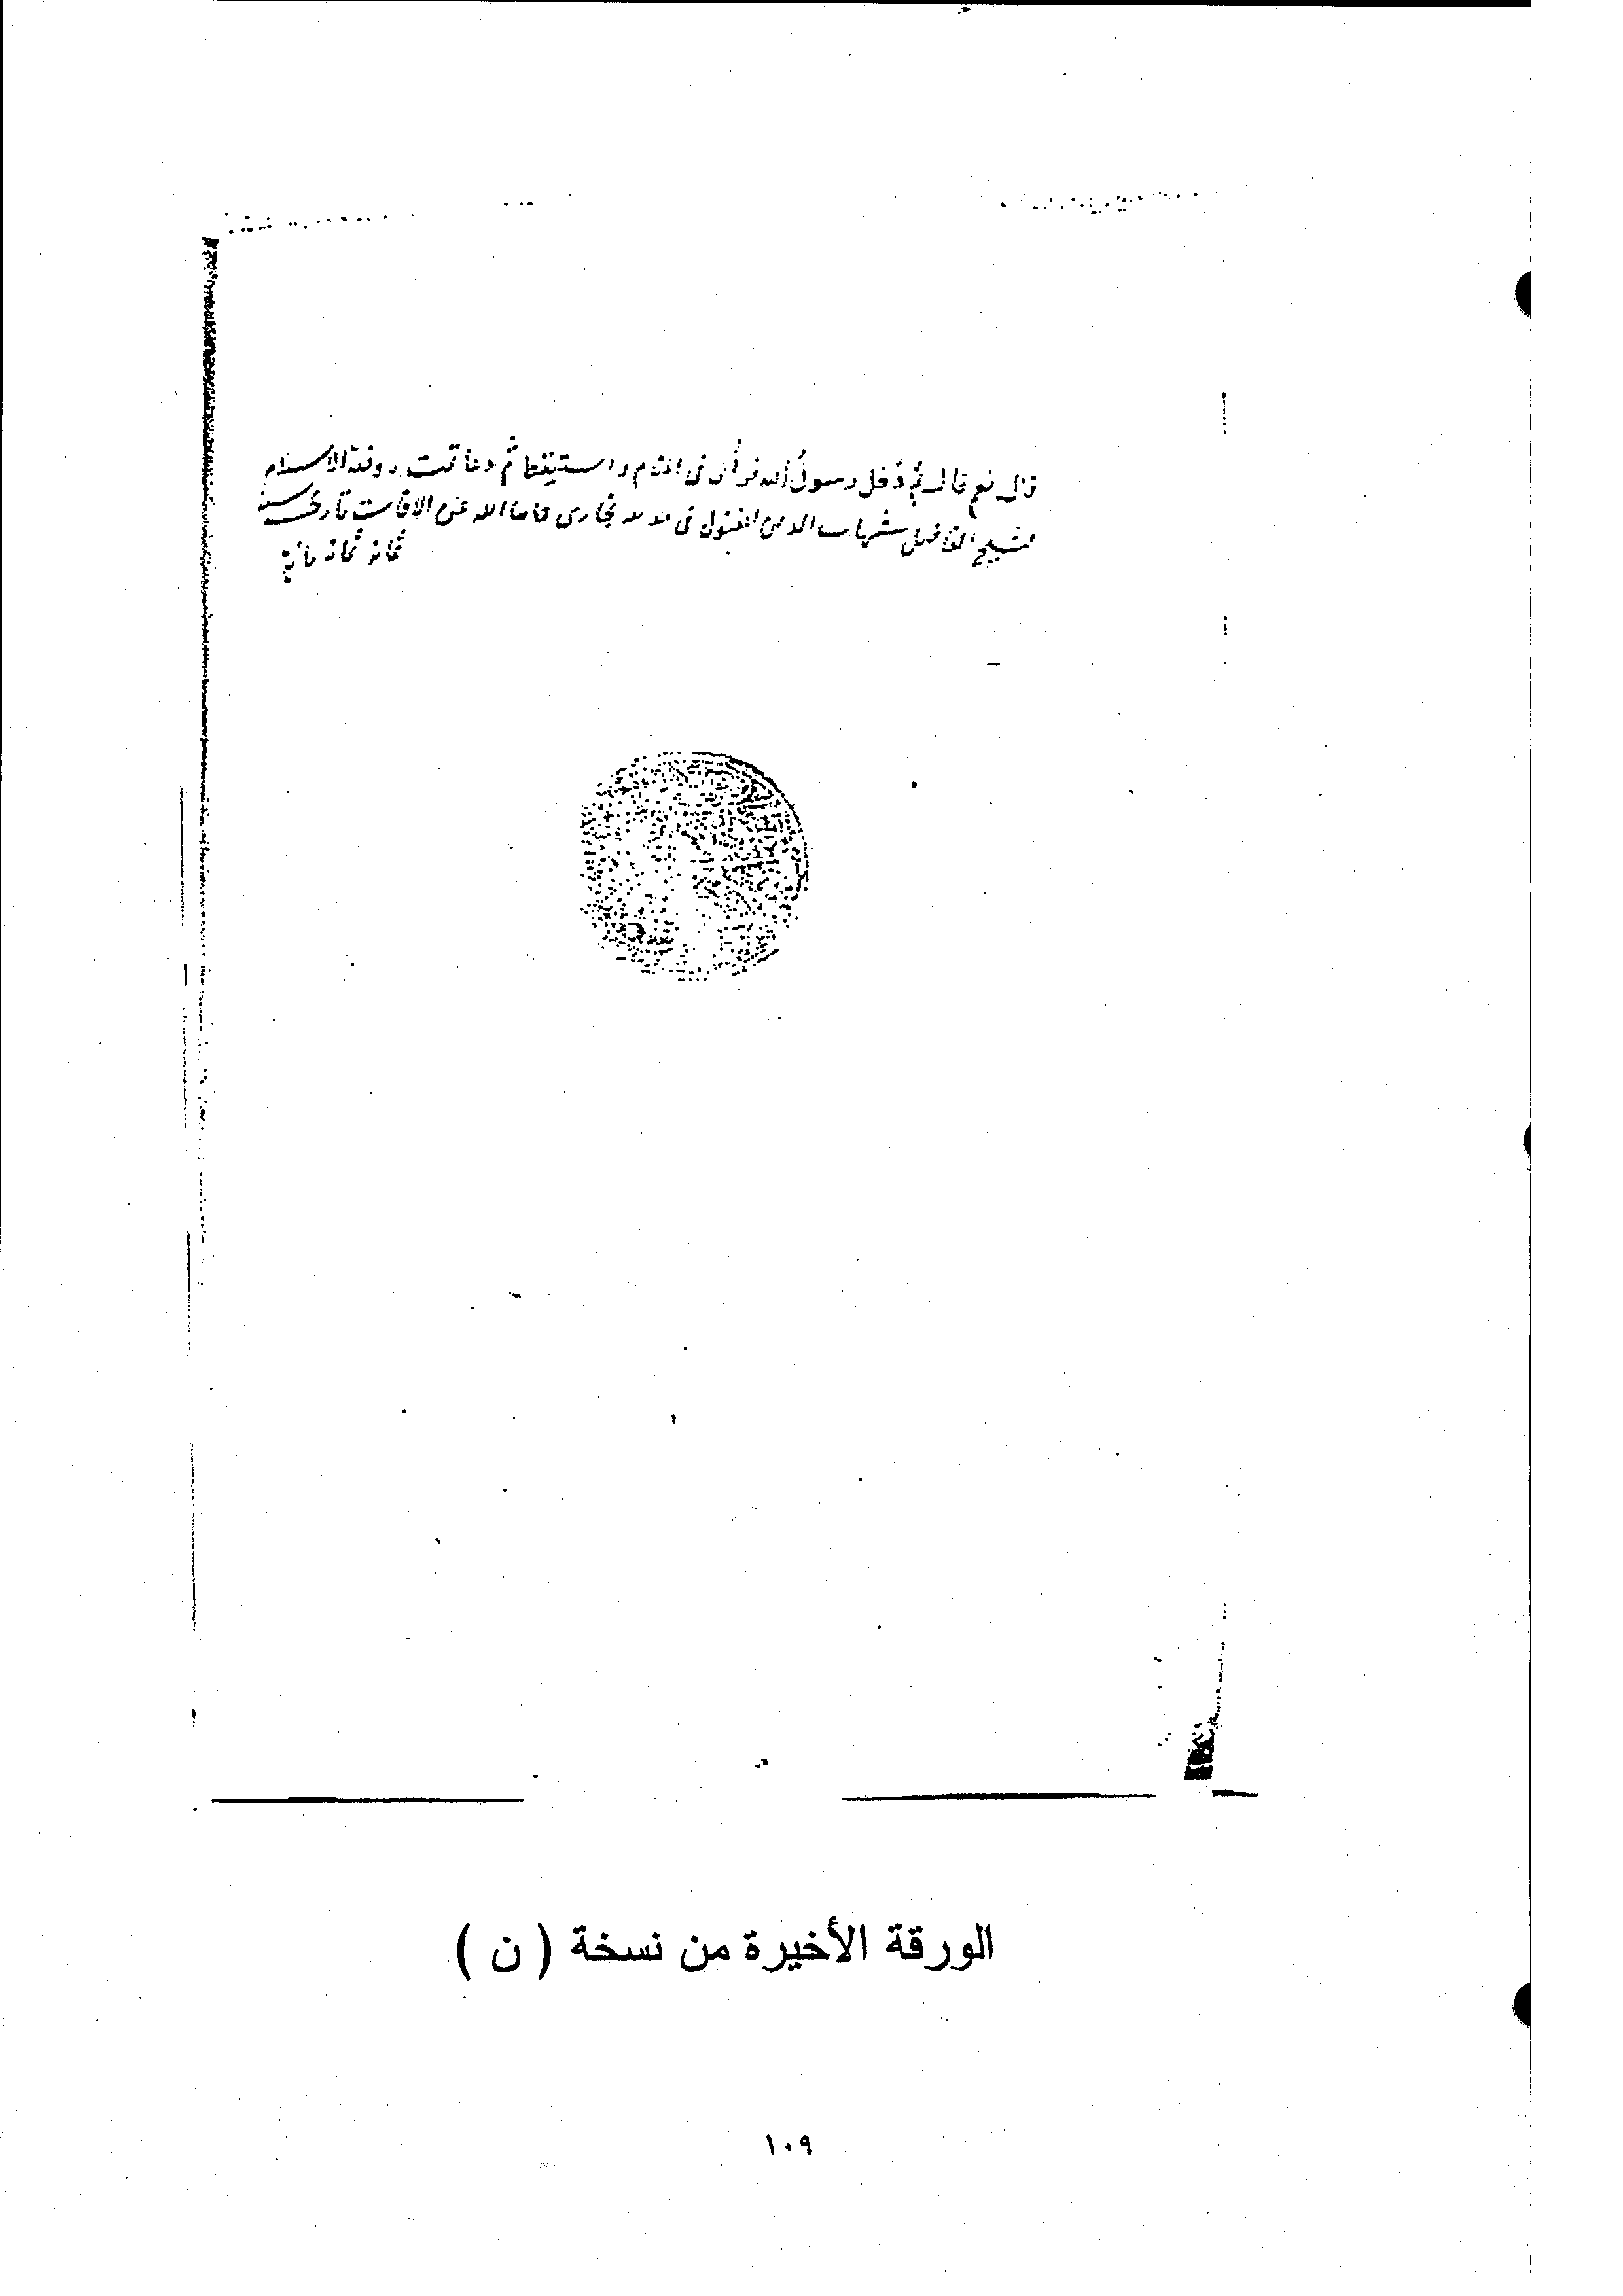 قال نعم قال ثم دخل رسول الله فرأى في المنام واستيقظا ثم دعا تمت روضة الاسلام
لشيخ الفاضل شهاب الدين المقتول في بخارى الله عن الافات تاريخ سنه
ثمانه ثمانه مائة
الورقة الأخيرة من نسخة ( ن )
١٠٩